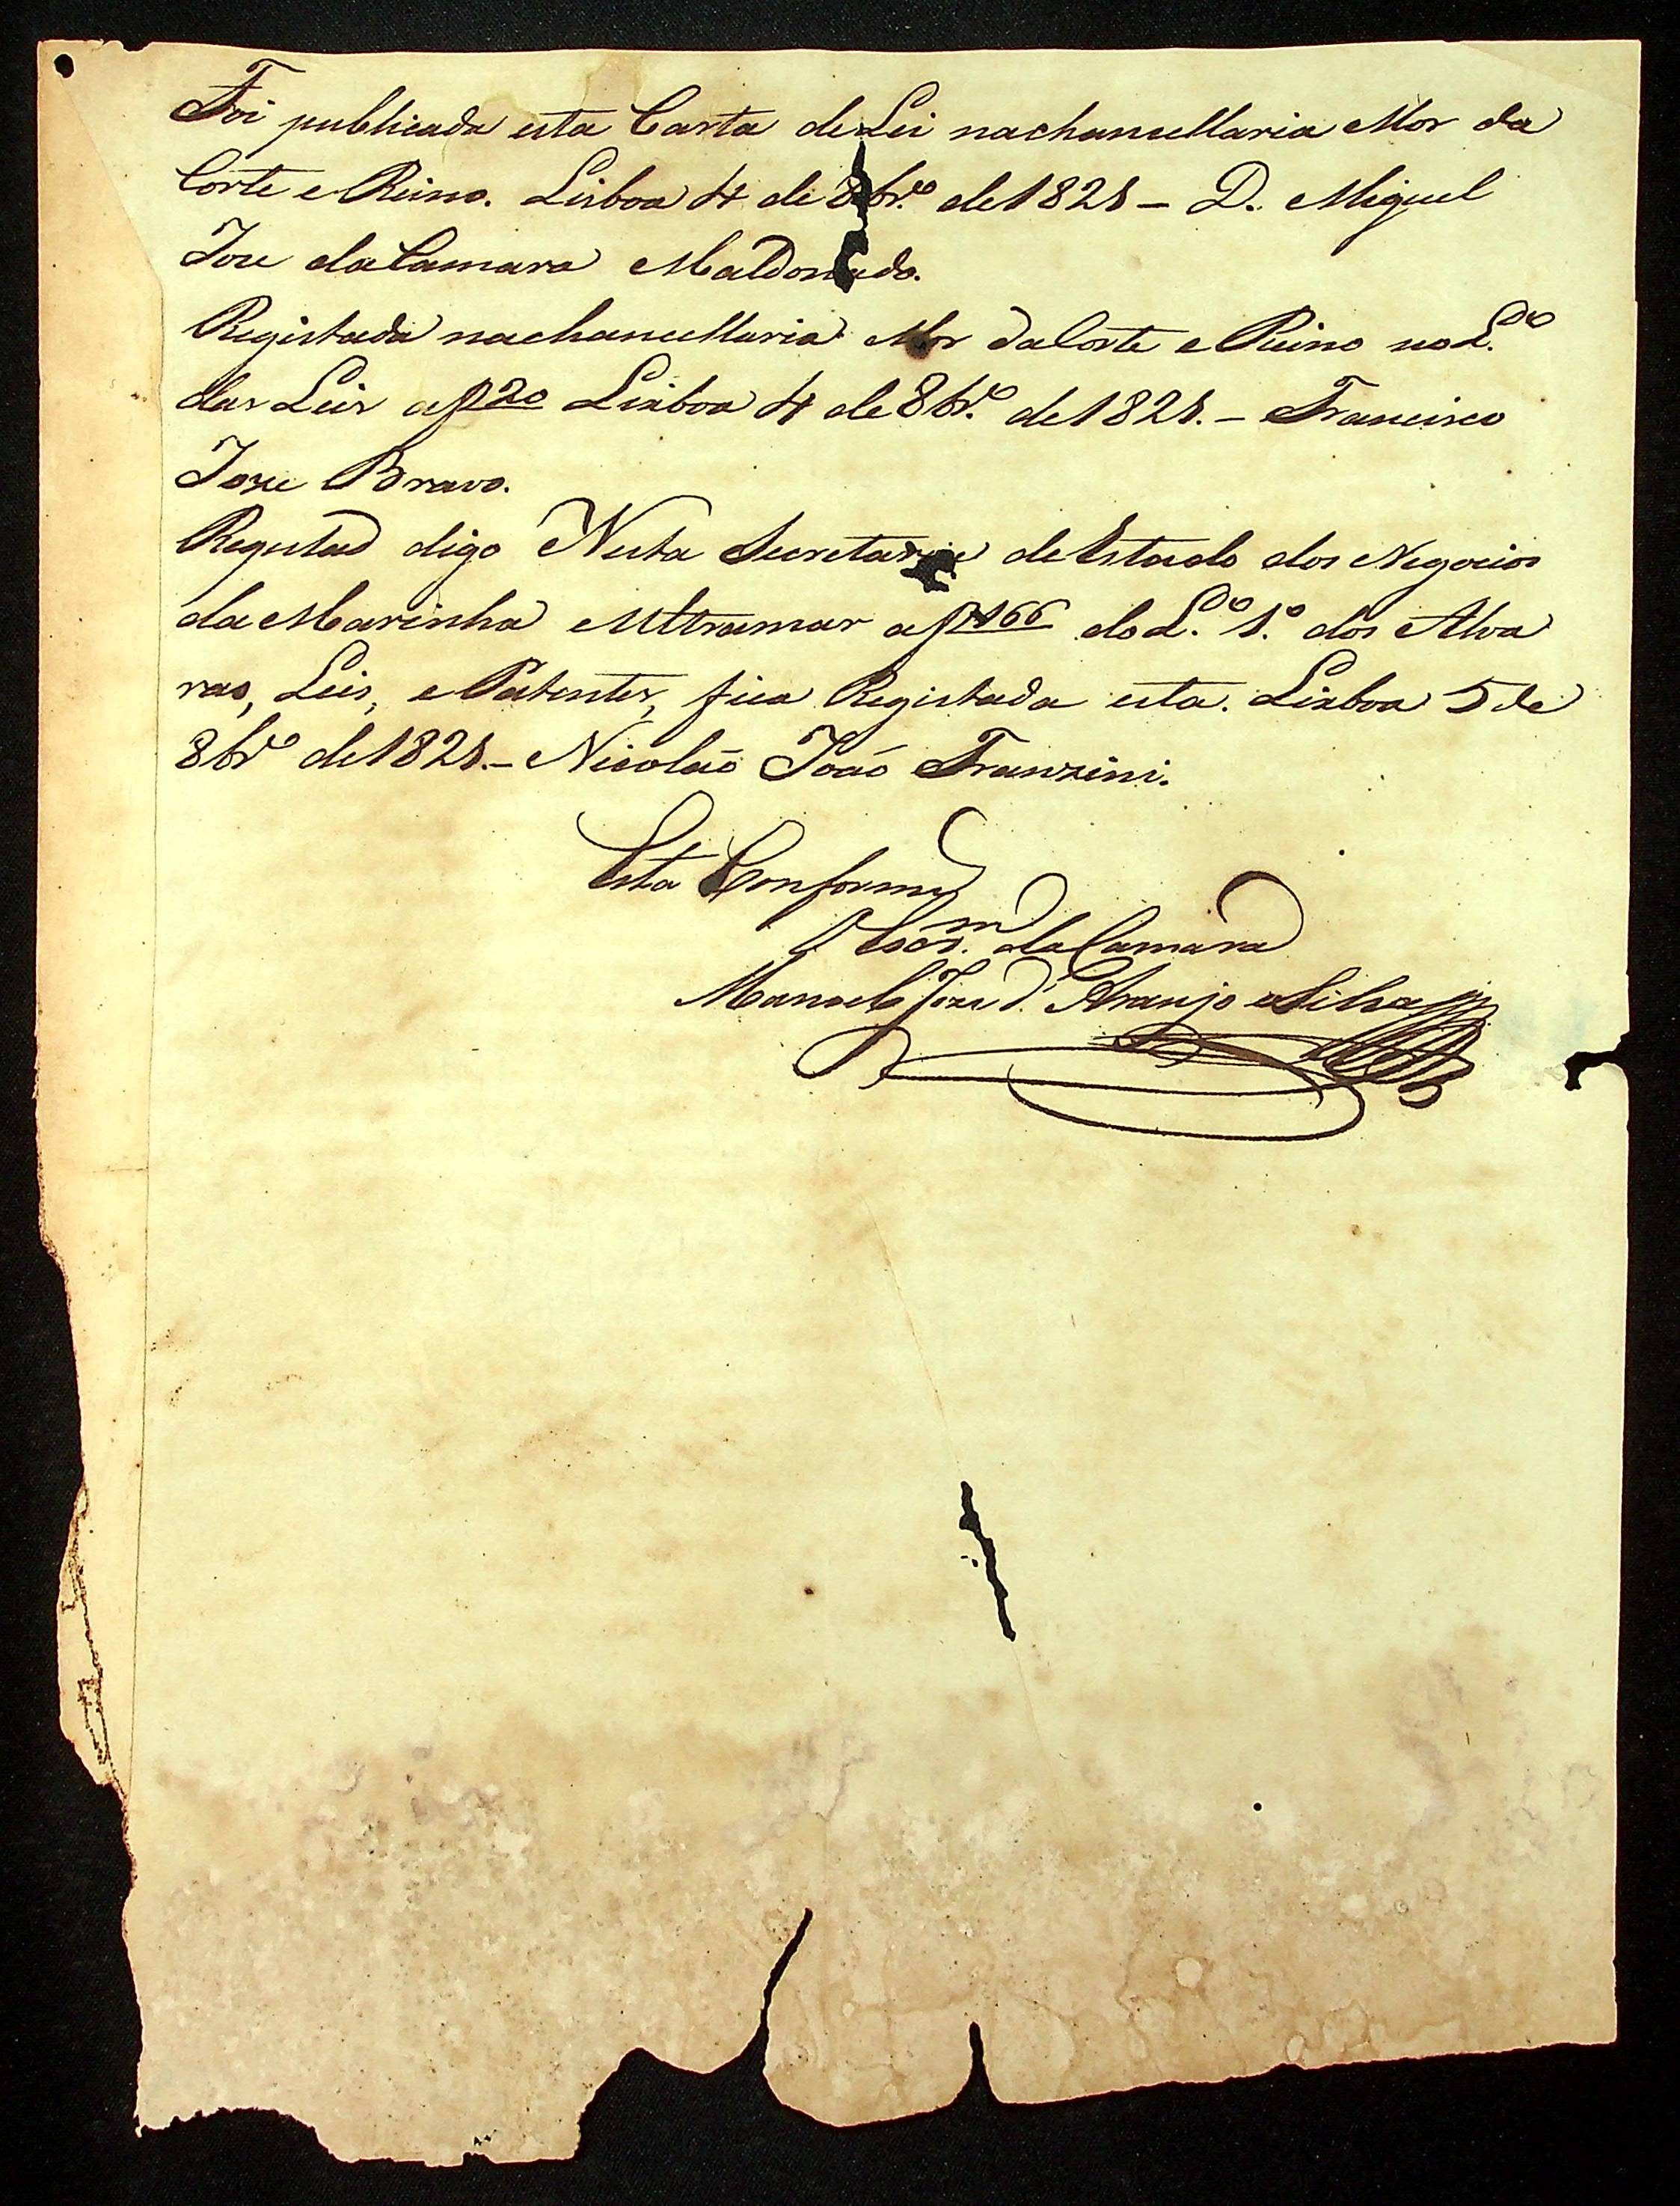 Foi publicada esta Carta de Lei na chancellaria Mor da
Corte e Reino. Lisboa 4 de 8br.º de 1821 – D. Miguel
Joze da Camara Maldonado.
Registada na chancellaria Mor da Corte e Reino no L.º
das Leis a f 20 Lisboa 4 de 8br.º de 1821. – Francisco
Joze Bravo.
Registad digo Nesta Secretaria de Estado dos Negocios
da Marinha e Ultramar a f 166 do L.º 1.º dos Alva
ras, Leis, e Patentes, fica Registada esta. Lisboa 5 de
8brº de 1821. – Nicoláo João Franzini.
Está Conforme
O Escr.m da Camara
Manoel Joze d'Araujo e Silva